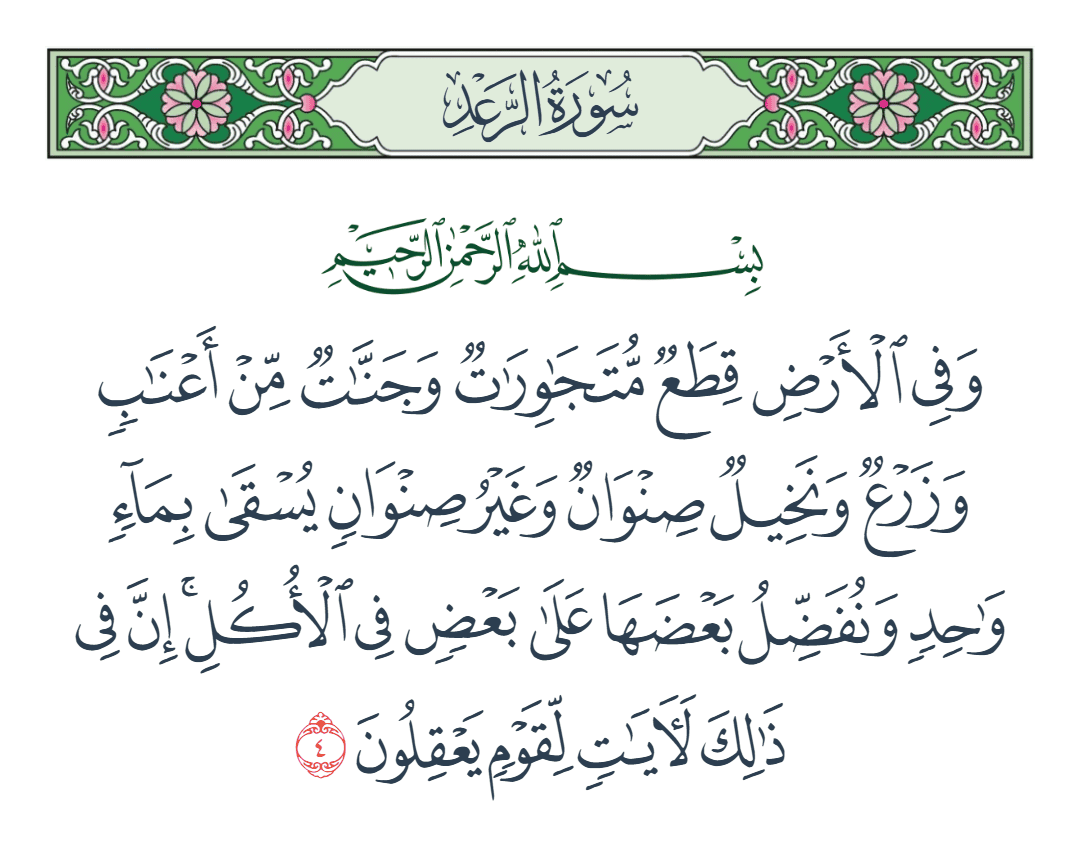 سُورَةُ الرَّعْدِ
بِسْمِ ٱللَّهِ ٱلرَّحْمَٰنِ ٱلرَّحِيمِ
وَفِي ٱلْأَرْضِ قِطَعٌ مُّتَجَٰوِرَٰتٌ وَجَنَّٰتٌ مِّنْ أَعْنَٰبٍ
وَزَرْعٌ وَنَخِيلٌ صِنْوَانٌ وَغَيْرُ صِنْوَانٍ يُسْقَىٰ بِمَآءٍ
وَٰحِدٍ وَنُفَضِّلُ بَعْضَهَا عَلَىٰ بَعْضٍ فِي ٱلْأُكُلِ ۚ إِنَّ فِي
ذَٰلِكَ لَأٓيَٰتٍ لِّقَوْمٍ يَعْقِلُونَ ٤